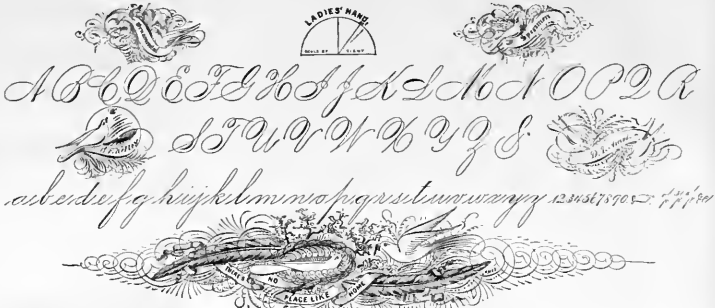 LADIES' HAND.
SCALE OF SIGHT
Specimen
A B C D E F G H I J K L M N O P Q R
S T U V W X Y Z &.
a b c d e f g h i j k l m n o p q r s t u v w x y z 1234567890
THERE'S NO PLACE LIKE HOME